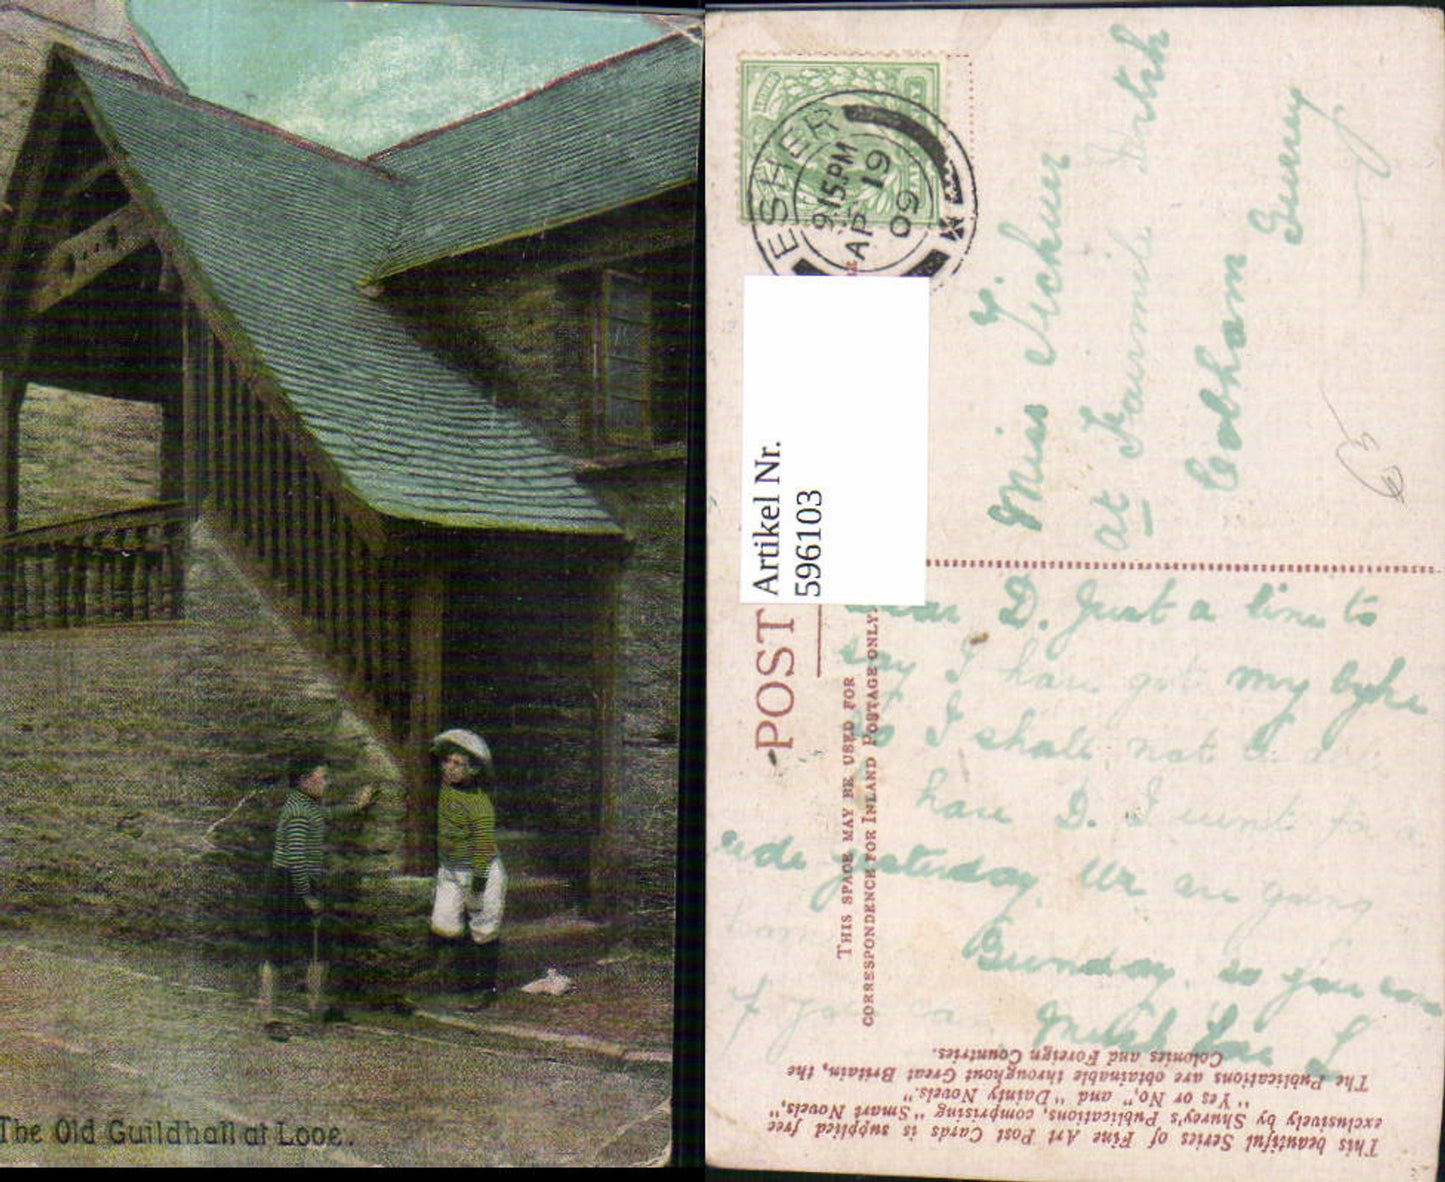 The Old Guildhall at Looe.
ESHER
9.15 PM
AP 19
09
Artikel Nr.
596103
POST
THIS SPACE MAY BE USED FOR
CORRESPONDENCE FOR INLAND POSTAGE ONLY.
Miss Tickner
at Fairmile
Cobham
Surrey
65
Dear D. Just a line to
say I have got my byke
so I shall not
have D. I went for a
ride yesterday. We are going
home Sunday. so you
if you can. Much love L
This beautiful Series of Fine Art Post Cards is supplied free
exclusively by Shurey's Publications, comprising "Smart Novels,"
"Yes or No," and "Dainty Novels."
The Publications are obtainable throughout Great Britain, the
Colonies and Foreign Countries.